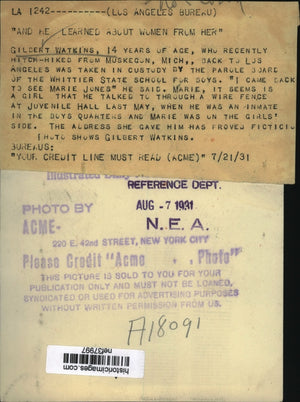 LA 1242----------(LOS ANGELES BUREAU)
"AND HE LEARNED ABOUT WOMEN FROM HER"
GILBERT WATKINS, 14 YEARS OF AGE, WHO RECENTLY
HITCH-HIKED FROM MUSKEGON, MICH,, BACK TO LOS
ANGELES WAS TAKEN IN CUSTODY BY THE PAROLE BOARD
OF THE WHITTIER STATE SCHOOL FOR BOYS. "I CAME BACK
TO SEE MARIE JONES" HE SAID. MARIE, IT SEEMS IS
A GIRL THAT HE TALKED TO THROUGH A WIRE FENCE
AT JUVENILE HALL LAST MAY, WHEN HE WAS AN INMATE
IN THE BOYS QUARTERS AND MARIE WAS ON THE GIRLS'
SIDE. THE ADDRESS SHE GAVE HIM HAS PROVED FICTICIO
PHOTO SHOWS GILBERT WATKINS.
BUREAUS:
"YOUR CREDIT LINE MUST READ (ACME)" 7/21/31
Illustrated
REFERENCE DEPT.
PHOTO BY
AUG -7 1931
ACME-
N.E.A.
220 E. 42nd STREET, NEW YORK CITY
Please Credit "Acme Photo"
THIS PICTURE IS SOLD TO YOU FOR YOUR
PUBLICATION ONLY AND MUST NOT BE LOANED,
SYNDICATED OR USED FOR ADVERTISING PURPOSES
WITHOUT WRITTEN PERMISSION FROM US.
A18091
historicimages.com
nef37997